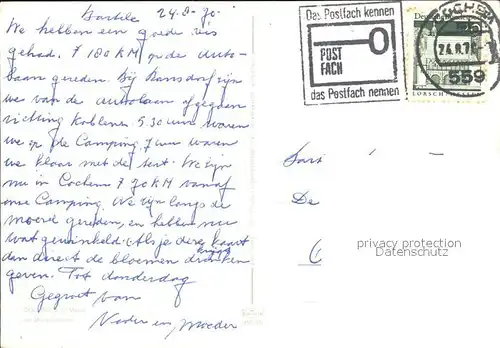 24-8-70.
We hebben een goede reis
gehad. ± 180 KM op de auto-
baan gereden. Bij zijn
we van de autobaan afgegaan
richting Koblenz 5.30 uur waren
we op de Camping. 7 uur waren
we klaar met de tent. We zijn
nu in Cochem ± 70 KM vanaf
onze Camping. We zijn langs de
moezel gereden, en hebben nu
wat gewinkeld. Als je deze kaart
krijgt
dan direct de bloemen drinken
geven. Tot donderdag
Gegroet van
Vader en moeder
Das Postfach kennen
POST
FACH
das Postfach nennen
COCHEM
24.8.70
559
LORSCH
De
privacy protection
Datenschutz